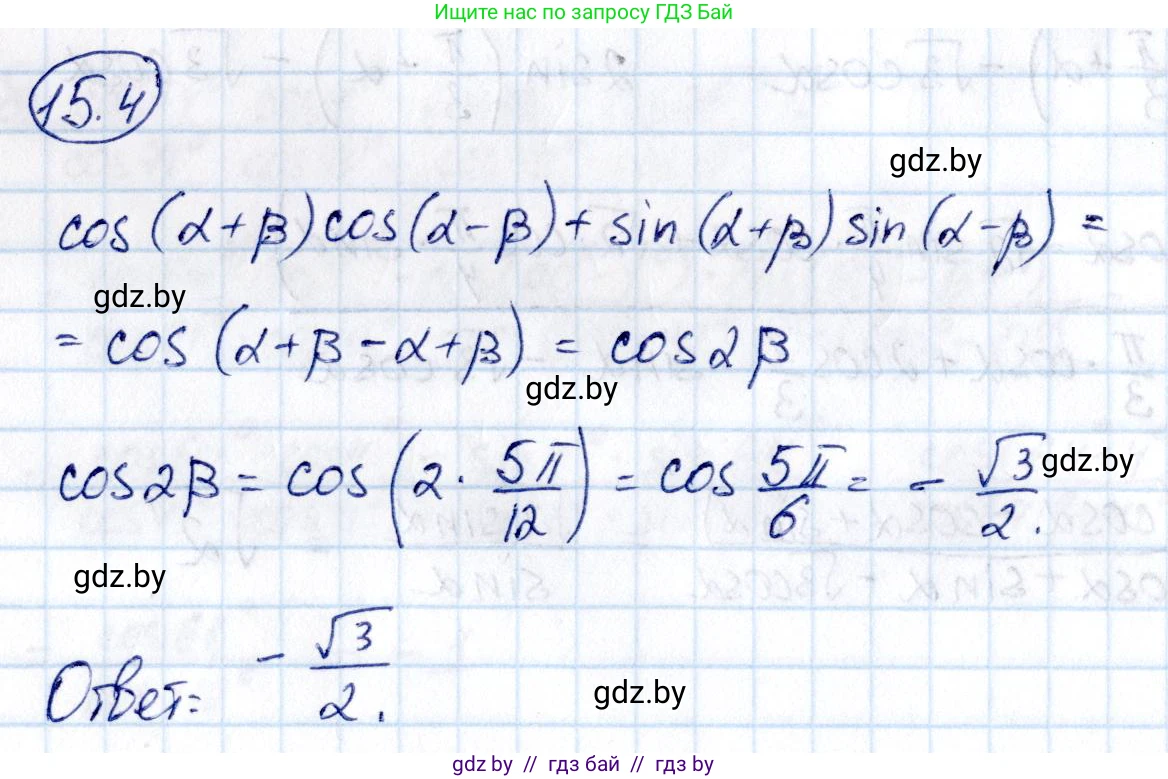 Ищите нас по запросу ГДЗ Бай
15.4
gdz.by
cos(α+β)cos(α-β)+sin(α+β)sin(α-β)=
gdz.by
= cos(α+β-α+β) = cos2β
gdz.by
cos2β = cos(2·5π/12) = cos 5π/6 = -√3/2.
gdz.by
gdz.by
Ответ: -√3/2.
gdz.by
gdz.by // гдз бай // гдз by